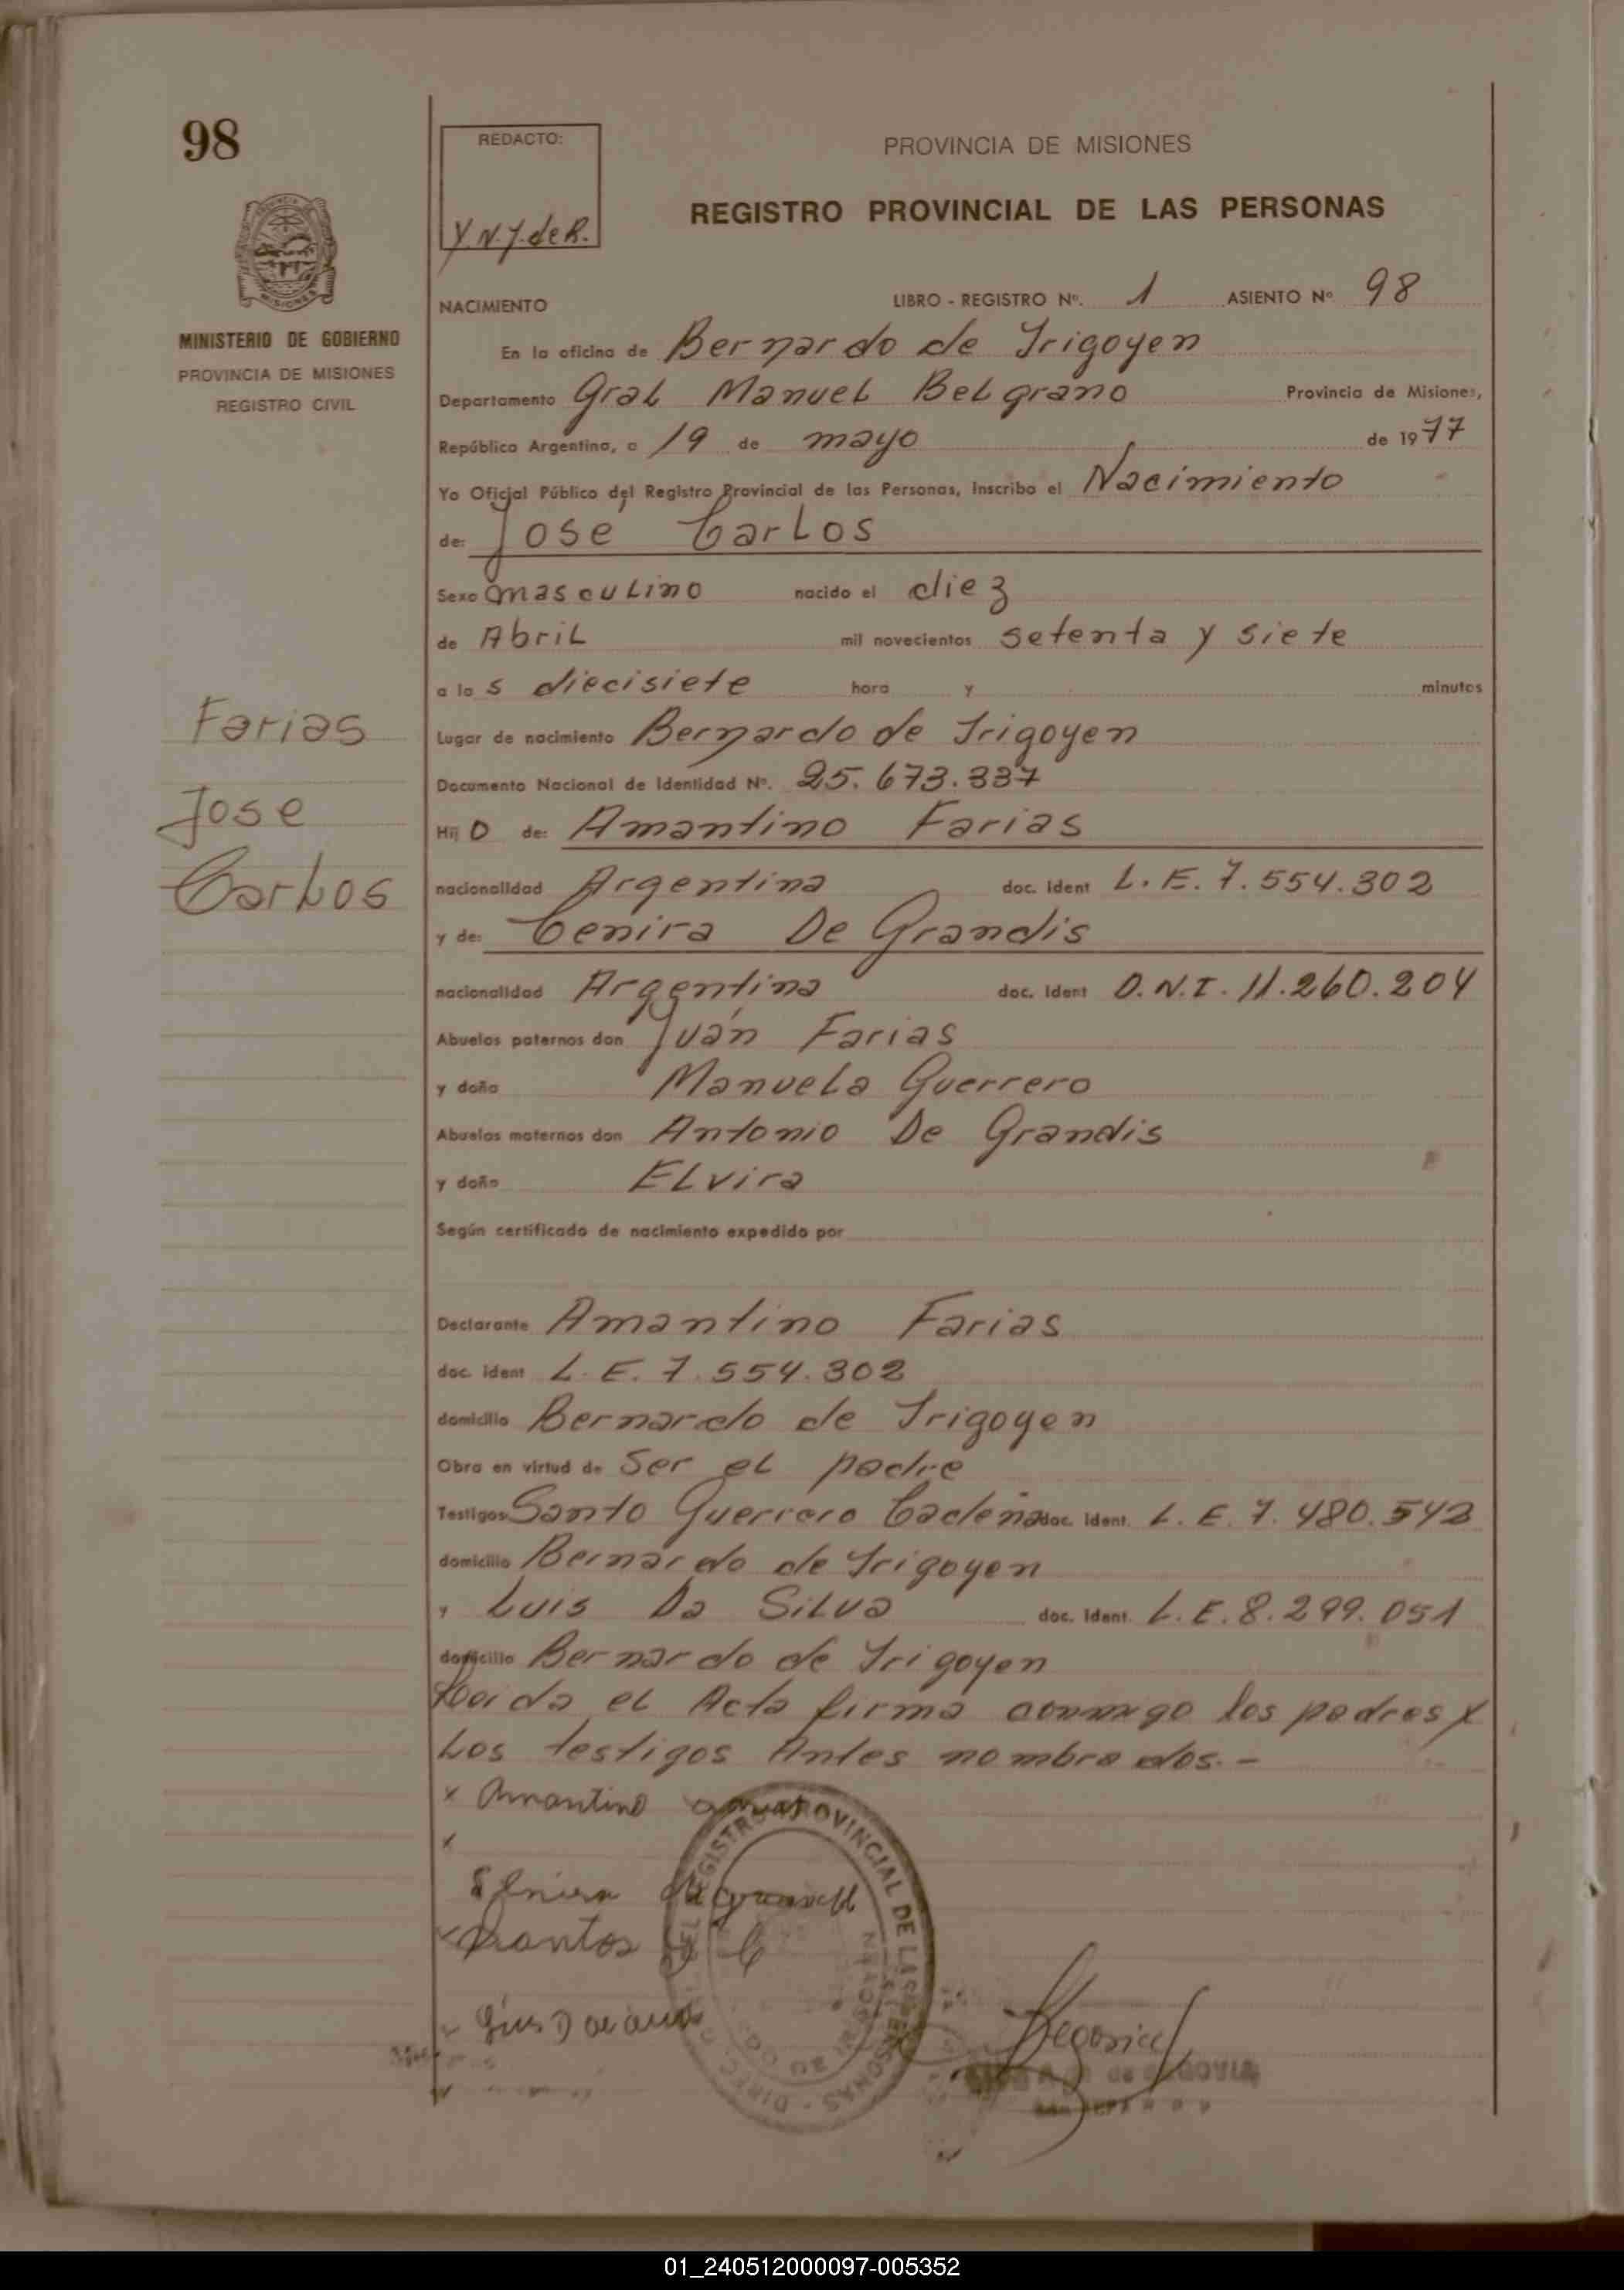 98
REDACTO:
Y.N.J. de R.
PROVINCIA DE MISIONES
REGISTRO PROVINCIAL DE LAS PERSONAS
MINISTERIO DE GOBIERNO
PROVINCIA DE MISIONES
REGISTRO CIVIL
NACIMIENTO LIBRO - REGISTRO Nº. 1 ASIENTO Nº 98
En la oficina de Bernardo de Irigoyen
Departamento Gral Manuel Belgrano Provincia de Misiones,
República Argentina, a 19 de mayo de 1977
Yo Oficial Público del Registro Provincial de las Personas, inscribo el Nacimiento
de: Jose Carlos
Sexo masculino nacido el diez
de Abril mil novecientos setenta y siete
a las diecisiete hora y minutos
Farias
Jose
Carlos
Lugar de nacimiento Bernardo de Irigoyen
Documento Nacional de Identidad Nº. 25.673.337
Hijo de: Amantino Farias
nacionalidad Argentina doc. Ident L.E. 7.554.302
y de: Cenira De Grandis
nacionalidad Argentina doc. Ident D.N.I. 11.260.204
Abuelos paternos don Juán Farias
y doña Manuela Guerrero
Abuelos maternos don Antonio De Grandis
y doña Elvira
Según certificado de nacimiento expedido por
Declarante Amantino Farias
doc. Ident L.E. 7.554.302
domicilio Bernardo de Irigoyen
Obra en virtud de Ser el padre
Testigos Santo Guerrero Cadeña doc. Ident. L.E. 7.480.542
domicilio Bernardo de Irigoyen
y Luis Da Silva doc. Ident. L.E. 8.299.051
domicilio Bernardo de Irigoyen
Leida el Acta firma conmigo los padres y
los testigos Antes nombrados.-
x Amantino
x
Santos G C
REGISTRO PROVINCIAL DE LAS PERSONAS
01_240512000097-005352